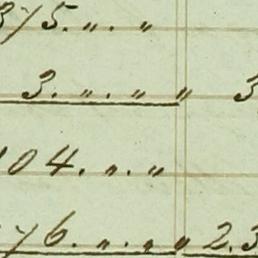 375. „ . „
3. „ . „ „ 3
104. „ . „
76. „ . „ „ 2.3